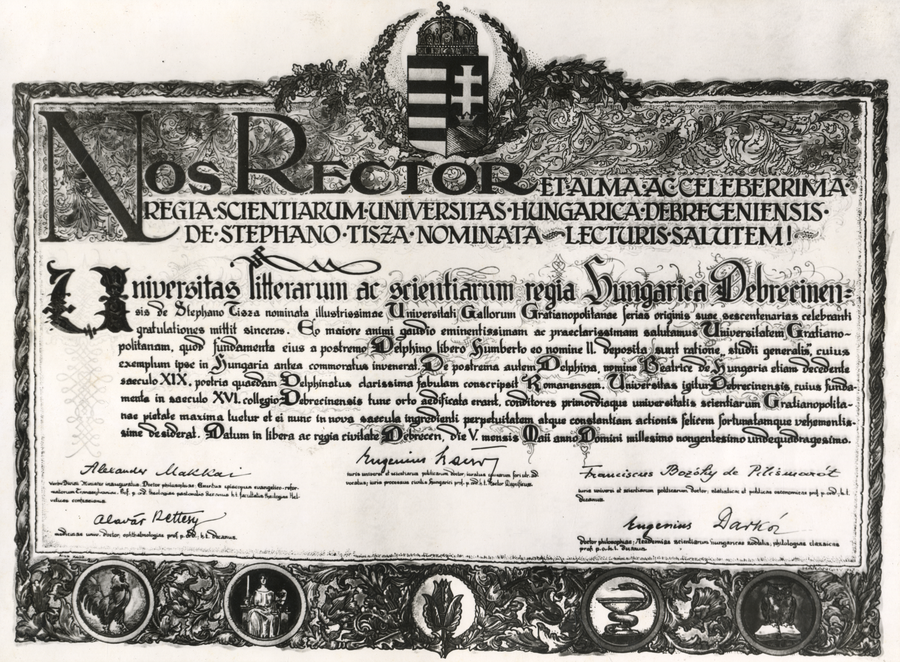 NOS RECTOR ET·ALMA·AC·CELEBERRIMA·
REGIA·SCIENTIARUM·UNIVERSITAS·HUNGARICA·DEBRECENIENSIS·
DE·STEPHANO·TISZA·NOMINATA LECTURIS·SALUTEM!
Universitas litterarum ac scientiarum regia Hungarica Debrecinen=
sis de Stephano Tisza nominata illustrissimae Universitati Gallorum Gratianopolitanae ferias originis suae sescentenarias celebranti
gratulationes mittit sinceras. Eo maiore animi gaudio eminentissimam ac praeclarissimam salutamus Universitatem Gratiano-
politanam, quod fundamenta eius a postremo Delphino libero Humberto eo nomine II. deposita sunt ratione „studii generalis", cuius
exemplum ipse in Hungaria antea commoratus invenerat. De postrema autem Delphina, nomine Beatrice de Hungaria etiam decedente
saeculo XIX. poetria quaedam Delphinatus clarissima fabulam conscripsit Romanensem. Universitas igitur Debrecinensis, cuius funda-
menta in saeculo XVI. collegio Debrecinensis tunc orto aedificata erant, conditores primordiaque universitatis scientiarum Gratianopolita-
nae pietate maxima tuetur et ei nunc in nova saecula ingredienti perpetuitatem atque constantiam actionis felicem fortunatamque vehementis-
sime desiderat. Datum in libera ac regia civitate Debrecen, die V. mensis Maii anno Domini millesimo nongentesimo undequadragesimo.
Alexander Makkai
Eugenius
Franciscus Bozóky de Pilismarót
Eugenius Darkó
doctor philosophiae, Academiae scientiarum hungaricae sodalis, philologiae classicae
prof. p. o. h. t. Decanus.